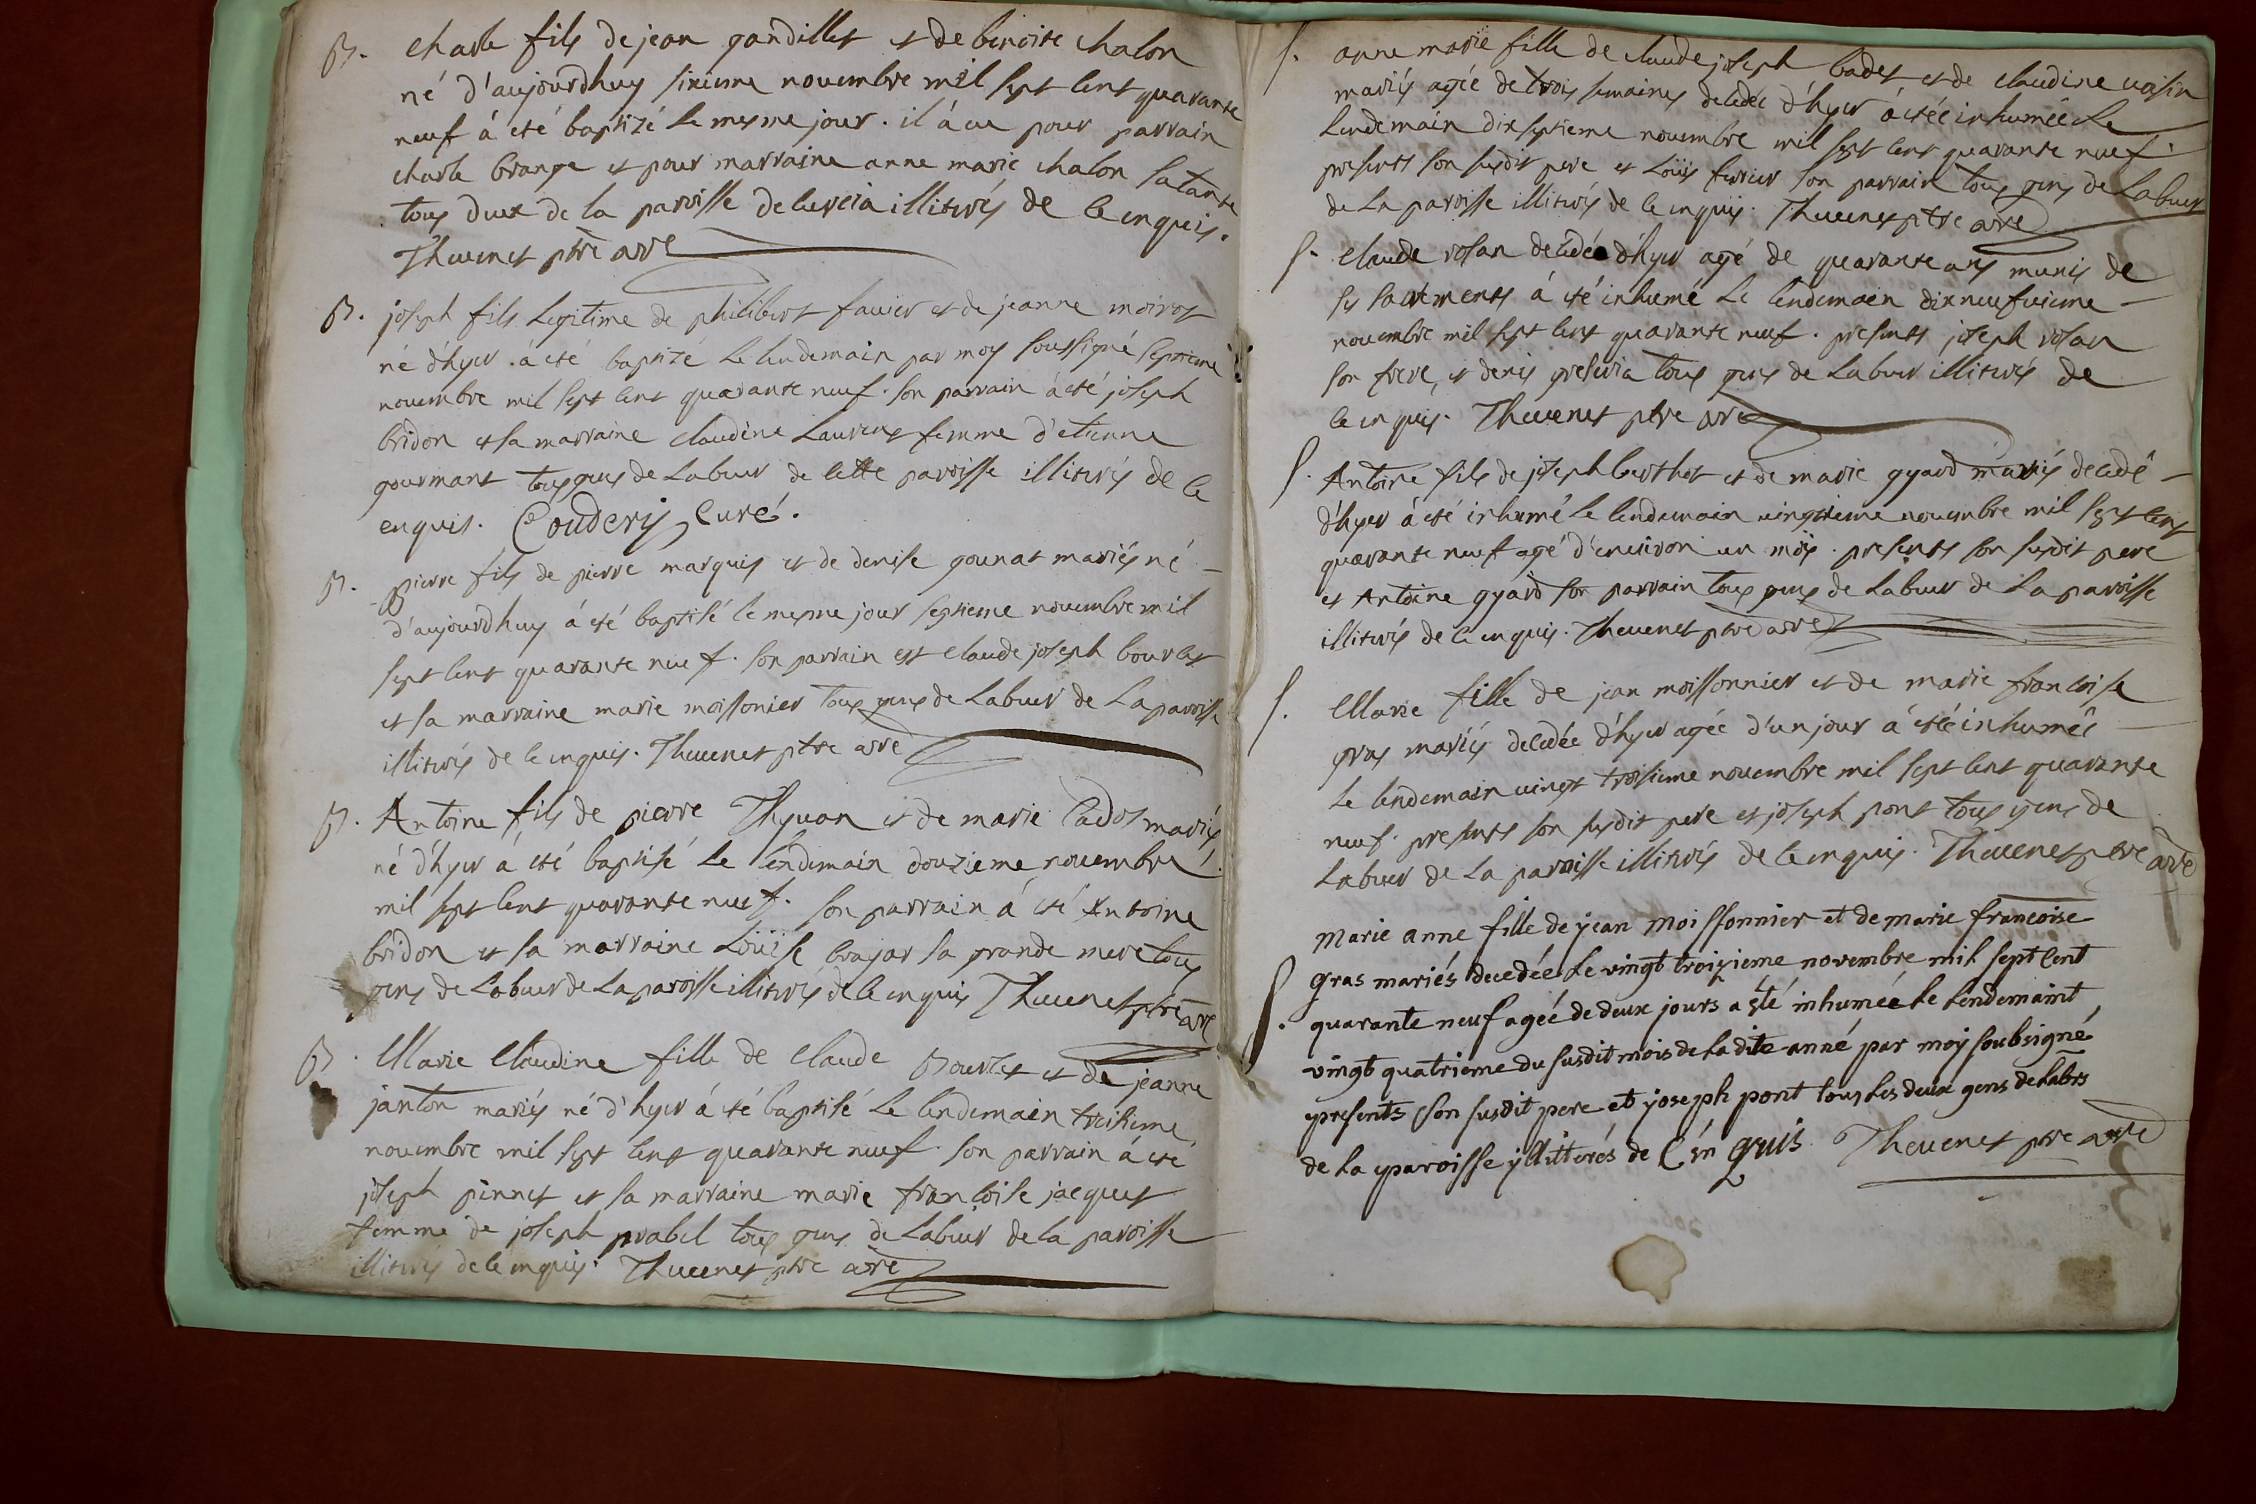 B. charle fils de jean gandillet et de benoite chalon
né d'aujourdhuy sixieme novembre mil sept cent quarante
neuf á eté baptizé le mesme jour. il á eu pour parrain
charle brange et pour marraine anne marie chalon sa tante
tous deux de la paroisse de luvcia illiterés de ce enquis.
Thevenet ptre arre
B. joseph fils legitime de philibert favier et de jeanne moirot
né d'hyer. á eté baptizé le lendemain par moy soussigné septieme
novembre mil sept cent quarante neuf. son parrain á eté joseph
bridon et sa marraine claudine Laurent femme d'etienne
gourmant tous gens de Labeur de cette paroisse illiterés de ce
enquis. Couderij Curé.
B. pierre fils de pierre marquis et de denise gounat mariés né
d'aujourdhuy á eté baptisé le mesme jour septieme novembre mil
sept cent quarante neuf. son parrain est claude joseph bourcet
et sa marraine marie moissonier tous gens de Labeur de La paroisse
illiterés de ce enquis. Thevenet ptre arre
B. Antoine fils de pierre Thyvan et de marie Cadot mariés
né d'hyer á eté baptisé le lendemain douzieme novembre
mil sept cent quarante neuf. son parrain á eté Antoine
bridon et sa marraine Loüise brajar sa grande mere tous
gens de Labeur de La paroisse illiterés de ce enquis Thevenet ptre arre
B. Marie Claudine fille de Claude Bourcet et de jeanne
janton mariés né d'hyer á eté baptisé le lendemain treisieme
novembre mil sept cent quarante neuf. son parrain á eté
joseph pinnet et sa marraine marie françoise jacquet
femme de joseph prabel tous gens de Labeur de la paroisse
illiterés de ce enquis. Thevenet ptre arre
S. anne marie fille de claude joseph badet et de claudine voisin
mariés agée de trois semaines decedée d'hyer á etée inhumée Le
Lendemain dix septieme novembre mil sept cent quarante neuf.
presents son susdit pere et Loüis ferrier son parrain tous gens de Labeur
de La paroisse illiterés de ce enquis. Thevenet ptre arre
S. Claude rosan decedé d'hyer agé de quarante ans munis de
ses sacrements á eté inhumé Le lendemain dix neufvieme
novembre mil sept cent quarante neuf. presents joseph rosan
son frere, et denis gresivia tous gens de Labeur illiterés de
ce enquis. Thevenet ptre arre
S. Antoine fils de joseph berthet et de marie gyard mariés decedé
d'hyer á eté inhumé Le lendemain vingtieme novembre mil sept cent
quarante neuf agé d'environ un mois. presents son susdit pere
et Antoine gyard son parrain tous gens de Labeur de La paroisse
illiterés de ce enquis. Thevenet ptre arre
S. Marie fille de jean moissonnier et de marie francoise
gras mariés decedée d'hyer agée d'un jour á etée inhumée
Le lendemain vingt troisieme novembre mil sept cent quarante
neuf. presents son susdit pere et joseph pont tous gens de
Labeur de La paroisse illiterés de ce enquis. Thevenet ptre arre
Marie anne fille de jean Moissonnier et de marie francoise
gras mariés decedée Le vingt troizieme novembre mil sept Cent
S. quarante neuf agée de deux jours a eté inhumée Le Lendemaint
vingt quatrieme du susdit mois de La dite anné par moy soubsigné
presents son susdit pere et yoseph pont tous Les deux gens de Labrs
de La paroisse yllitterés de Cén quis Thevenet ptre arre